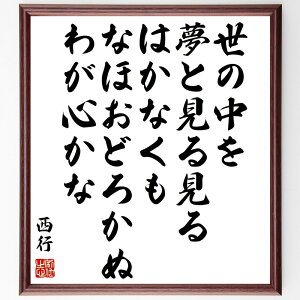 世の中を
夢と見る見る
はかなくも
なほおどろかぬ
わが心かな
西行